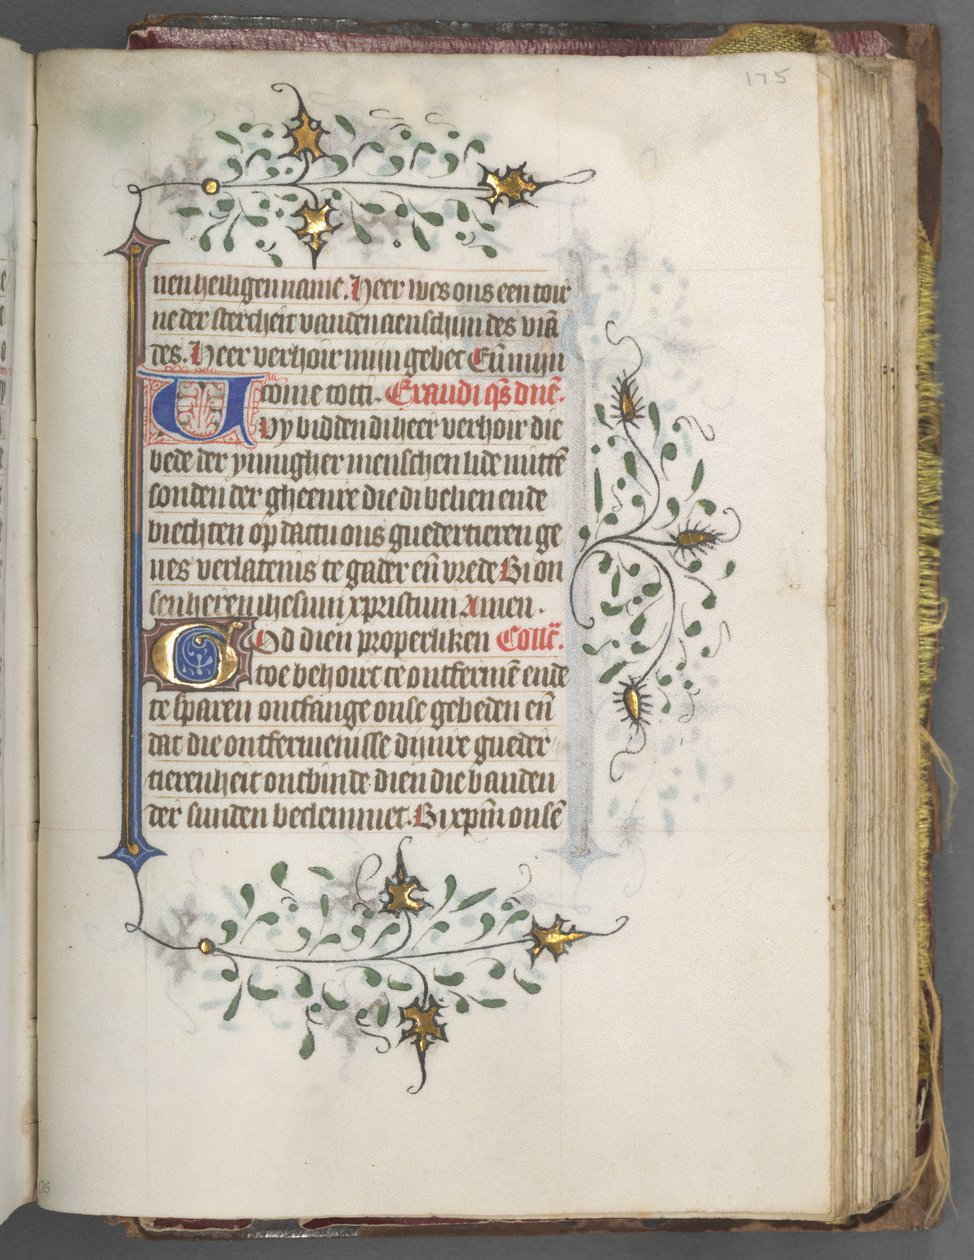 175
nen heiligen name. Heer wes ons een toir
ne der stercheit van den aenschijn des viā
des. Heer verhoir mijn gebet Eñ mijn
come tot ti. Exaudi qs̄ dnē.
Wy bidden di heer verhoir die
bede der ynnigher menschen lide mittē
sonden der gheenre die di belien ende
biechten op dattu ons guedertieren ge
ues verlatenis te gader eñ vrede Bi on
sen heren ihesum xpristum Amen.
God dien properliken Coll̄c.
toe behoirt te ontfermē ende
te sparen ontfange onse gebeden eñ
dat die ontfermenisse dijnre gueder
tierenheit ontbinde dien die banden
der sunden beclemmet. Bi xpm̄ onsē